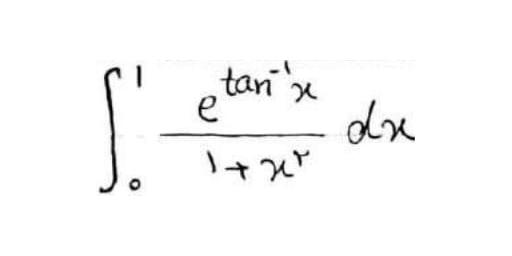 ∫₀¹ e^(tan⁻¹x) / (1+x²) dx